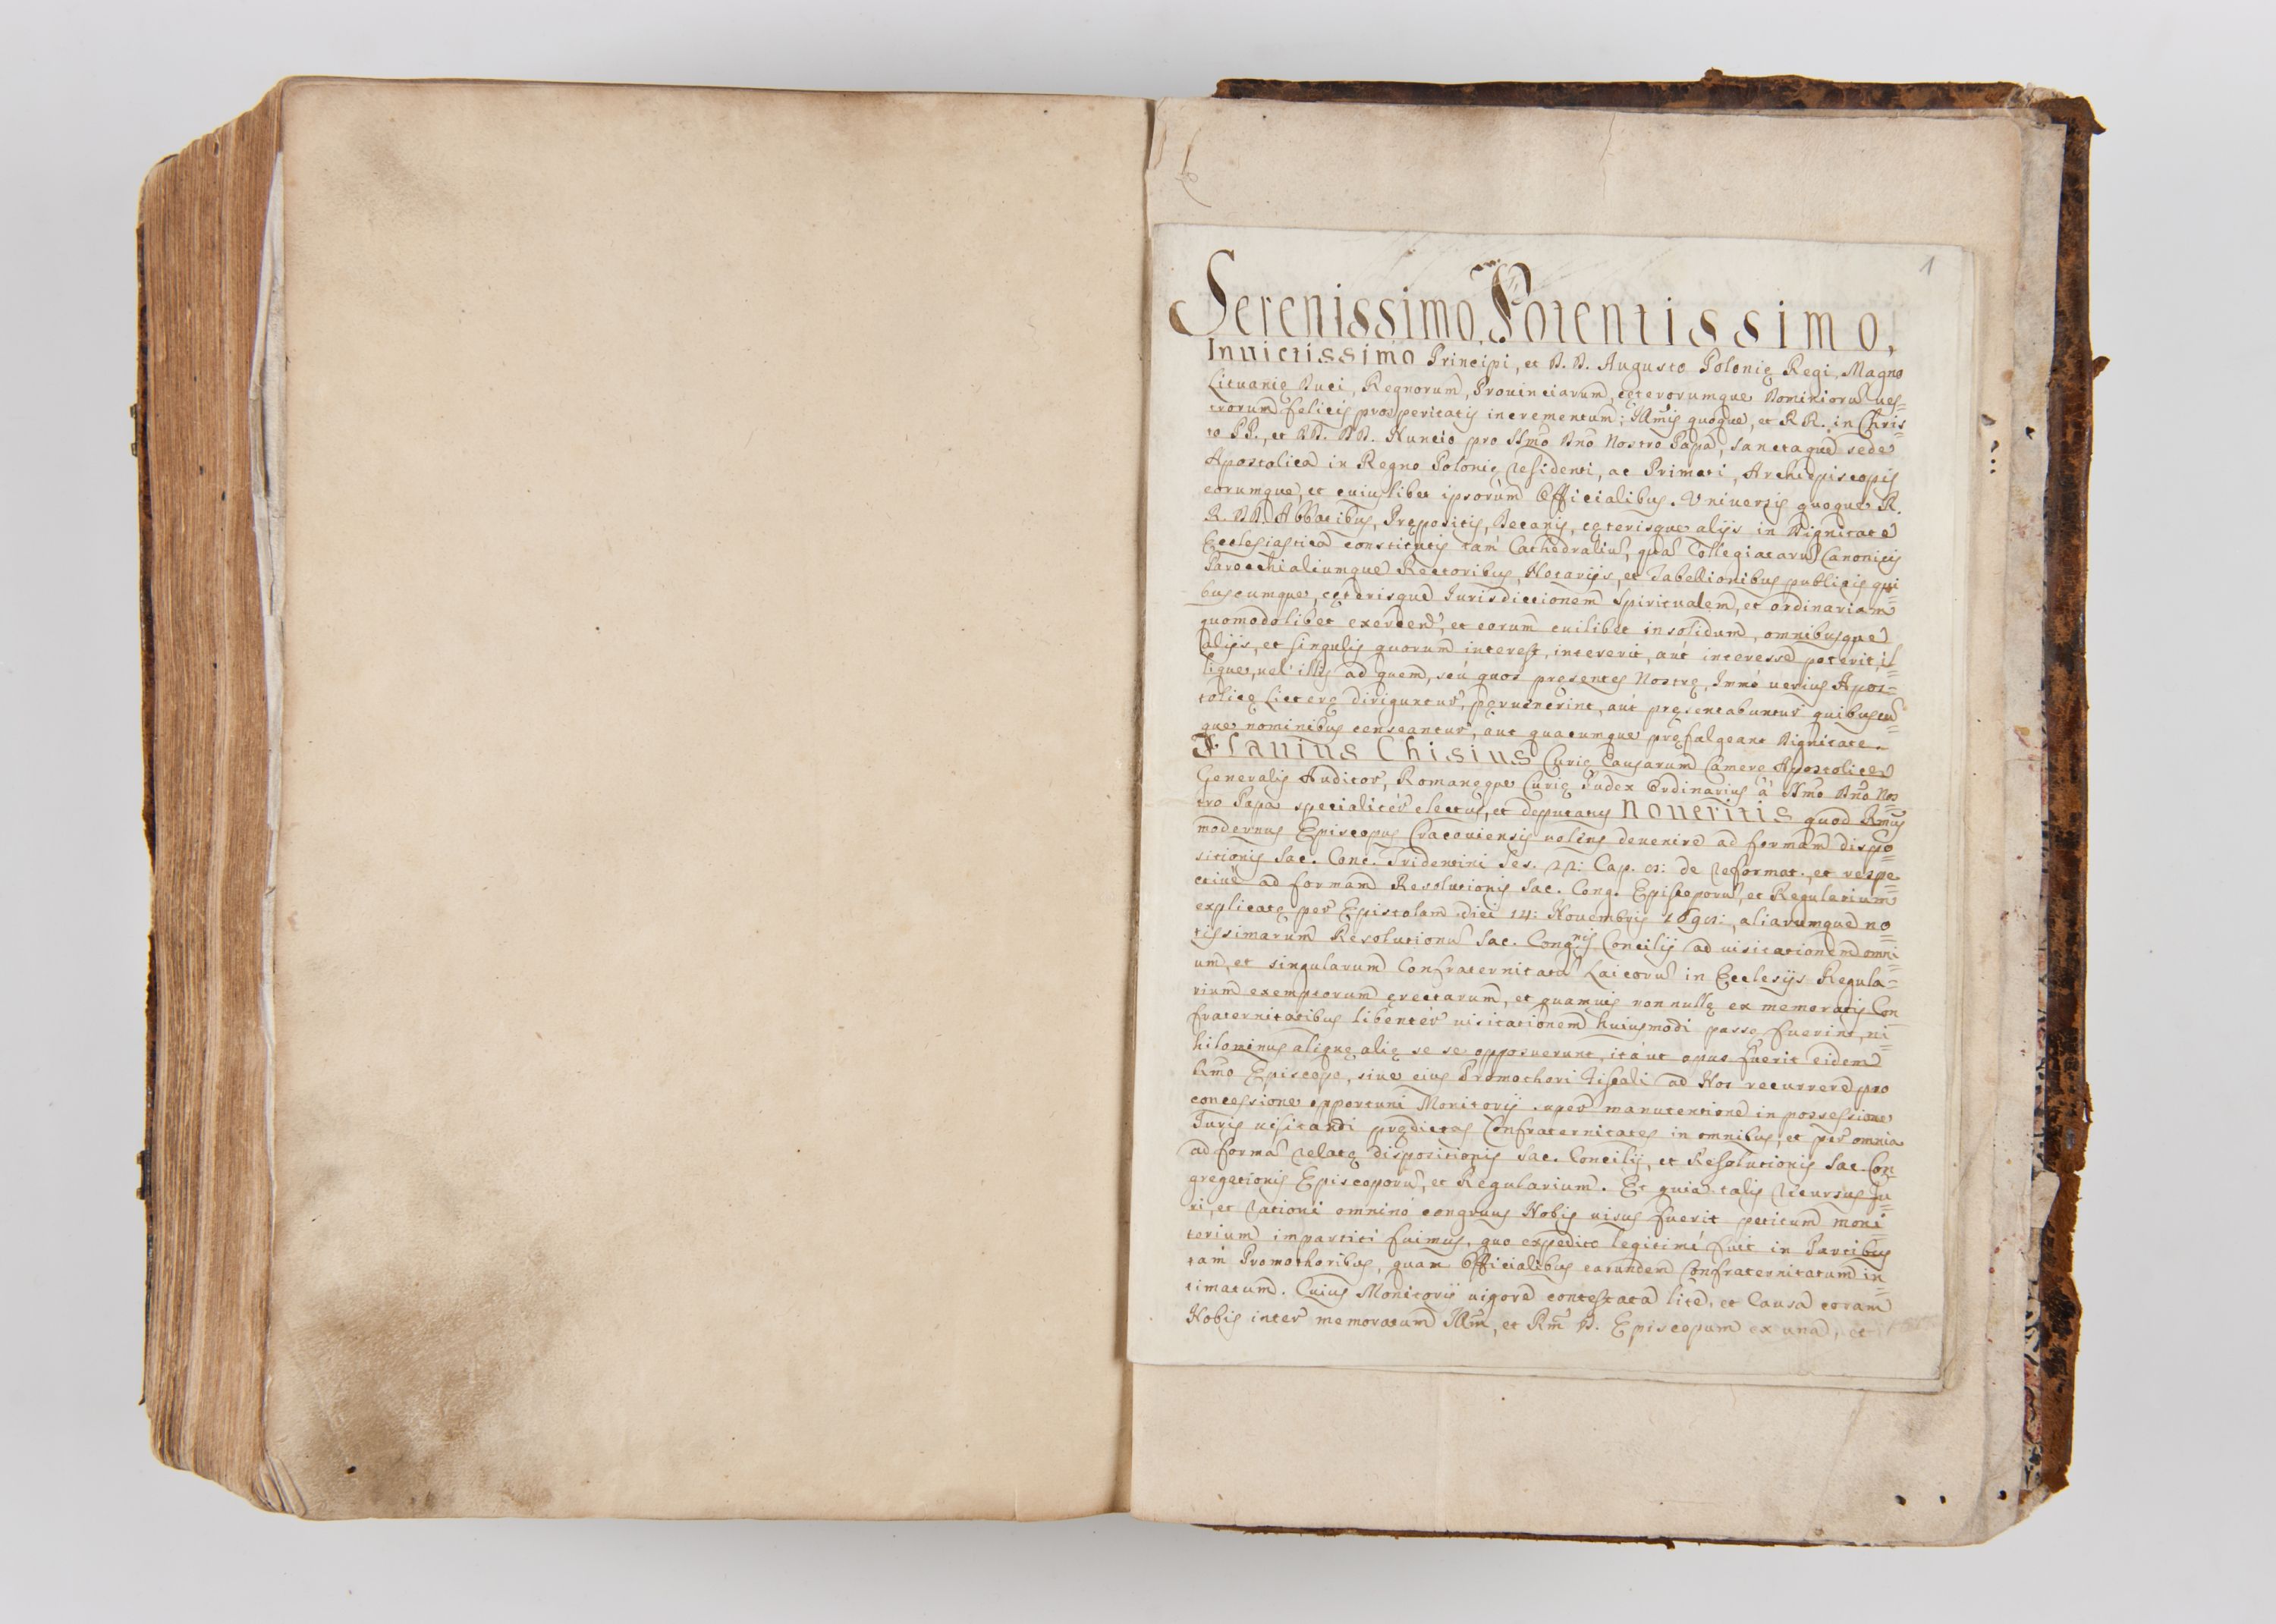 1
Serenissimo, Potentissimo,
Inuictissimo Principi, et D. D. Augusto Polonię Regi, Magno
Lituanię Duci, Regnorum, Prouinciarum, cęterorumque Dominioru ues=
trorum felicis prosperitatis incrementum; Illmis quoque, et RR. in Chris=
to PP., et DD. DD. Nuncio pro SSmo Dno Nostro Papa, Sanctaque sede
Apostolica in Regno Polonię residenti, ac Primati, Archiepiscopis
eorumque, et cuiuslibet ipsorum Officialibus. Uniuersis quoque R.
R. DD. Abbatibus, Prępositis, Decanis, cęterisque alijs in Dignitate
Ecclesiastica constitutis tam Cathedraliu, qua Collegiataru Canonicis
Parochialiumque Rectoribus, Notarijs, et Tabellionibus publicis qui=
buscumque, cęterisque Iurisdictionem Spiritualem, et ordinariam
quomodolibet exercen, et eorum cuilibet insolidum, omnibusque
alijs, et singulis quorum interest, intererit, aut interesse poterit, il=
lique, uel illis ad quem, seu quos presentes Nostrę, Immo uerius Apos=
tolicę Litterę diriguntur, peruenerint, aut pręsentabuntur quibuscu=
que nominibus censeantur, aut quacumque pręfulgeant Dignitate.
Flauius Chisius Curię Causarum Camerę Apostolicę
Generalis Auditor, Romanęque Curię Iudex Ordinarius a SSmo Dno Nos=
tro Papa specialiter electus, et deputatus Noueritis quod Rmus
modernus Episcopus Cracouiensis uolens deuenire ad formam dispo=
sitionis Sac. Conc. Tridentini Ses. 22: Cap. de reformat., et respe=
ctiue ad formam Resolutionis Sac. Cong. Episcoporu, et Regularium
explicatę per Epistolam diei 14: Nouembris aliarumque no=
tissimarum Resolutionu Sac. Congnis Concilij ad uisitationem omni=
um, et singularum Confraternitatu Laicoru in Ecclesijs Regula=
rium exemptorum erectarum, et quamuis non nullę ex memoratis Con=
fraternitatibus libenter uisitationem huiusmodi passę fuerint, ni=
hilominus aliquę alię se se opposuerunt, ita ut opus fuerit eidem
Rmo Episcopo, siue eius Promothori Fiscali ad Nos recurrere pro
concessione opportuni Monitorij super manutentione in possessione
Iuris uisitandi prędictas Confraternitates in omnibus, et per omnia
ad forma relatę dispositionis Sac. Concilij, et Resolutionis Sac. Con=
gregationis Episcoporu, et Regularium. Et quia talis recursus Iu=
ri, et rationi omnino congruus Nobis uisus fuerit petitum Moni=
torium impartiti fuimus, quo expedito legitime fuit in Partibus
tam Promothoribus, quam Officialibus earundem Confraternitatum in=
timatum. Cuius Monitorij uigore contestata lite, et Causa coram
Nobis inter memoratum Illm, et Rm D. Episcopum ex una, et